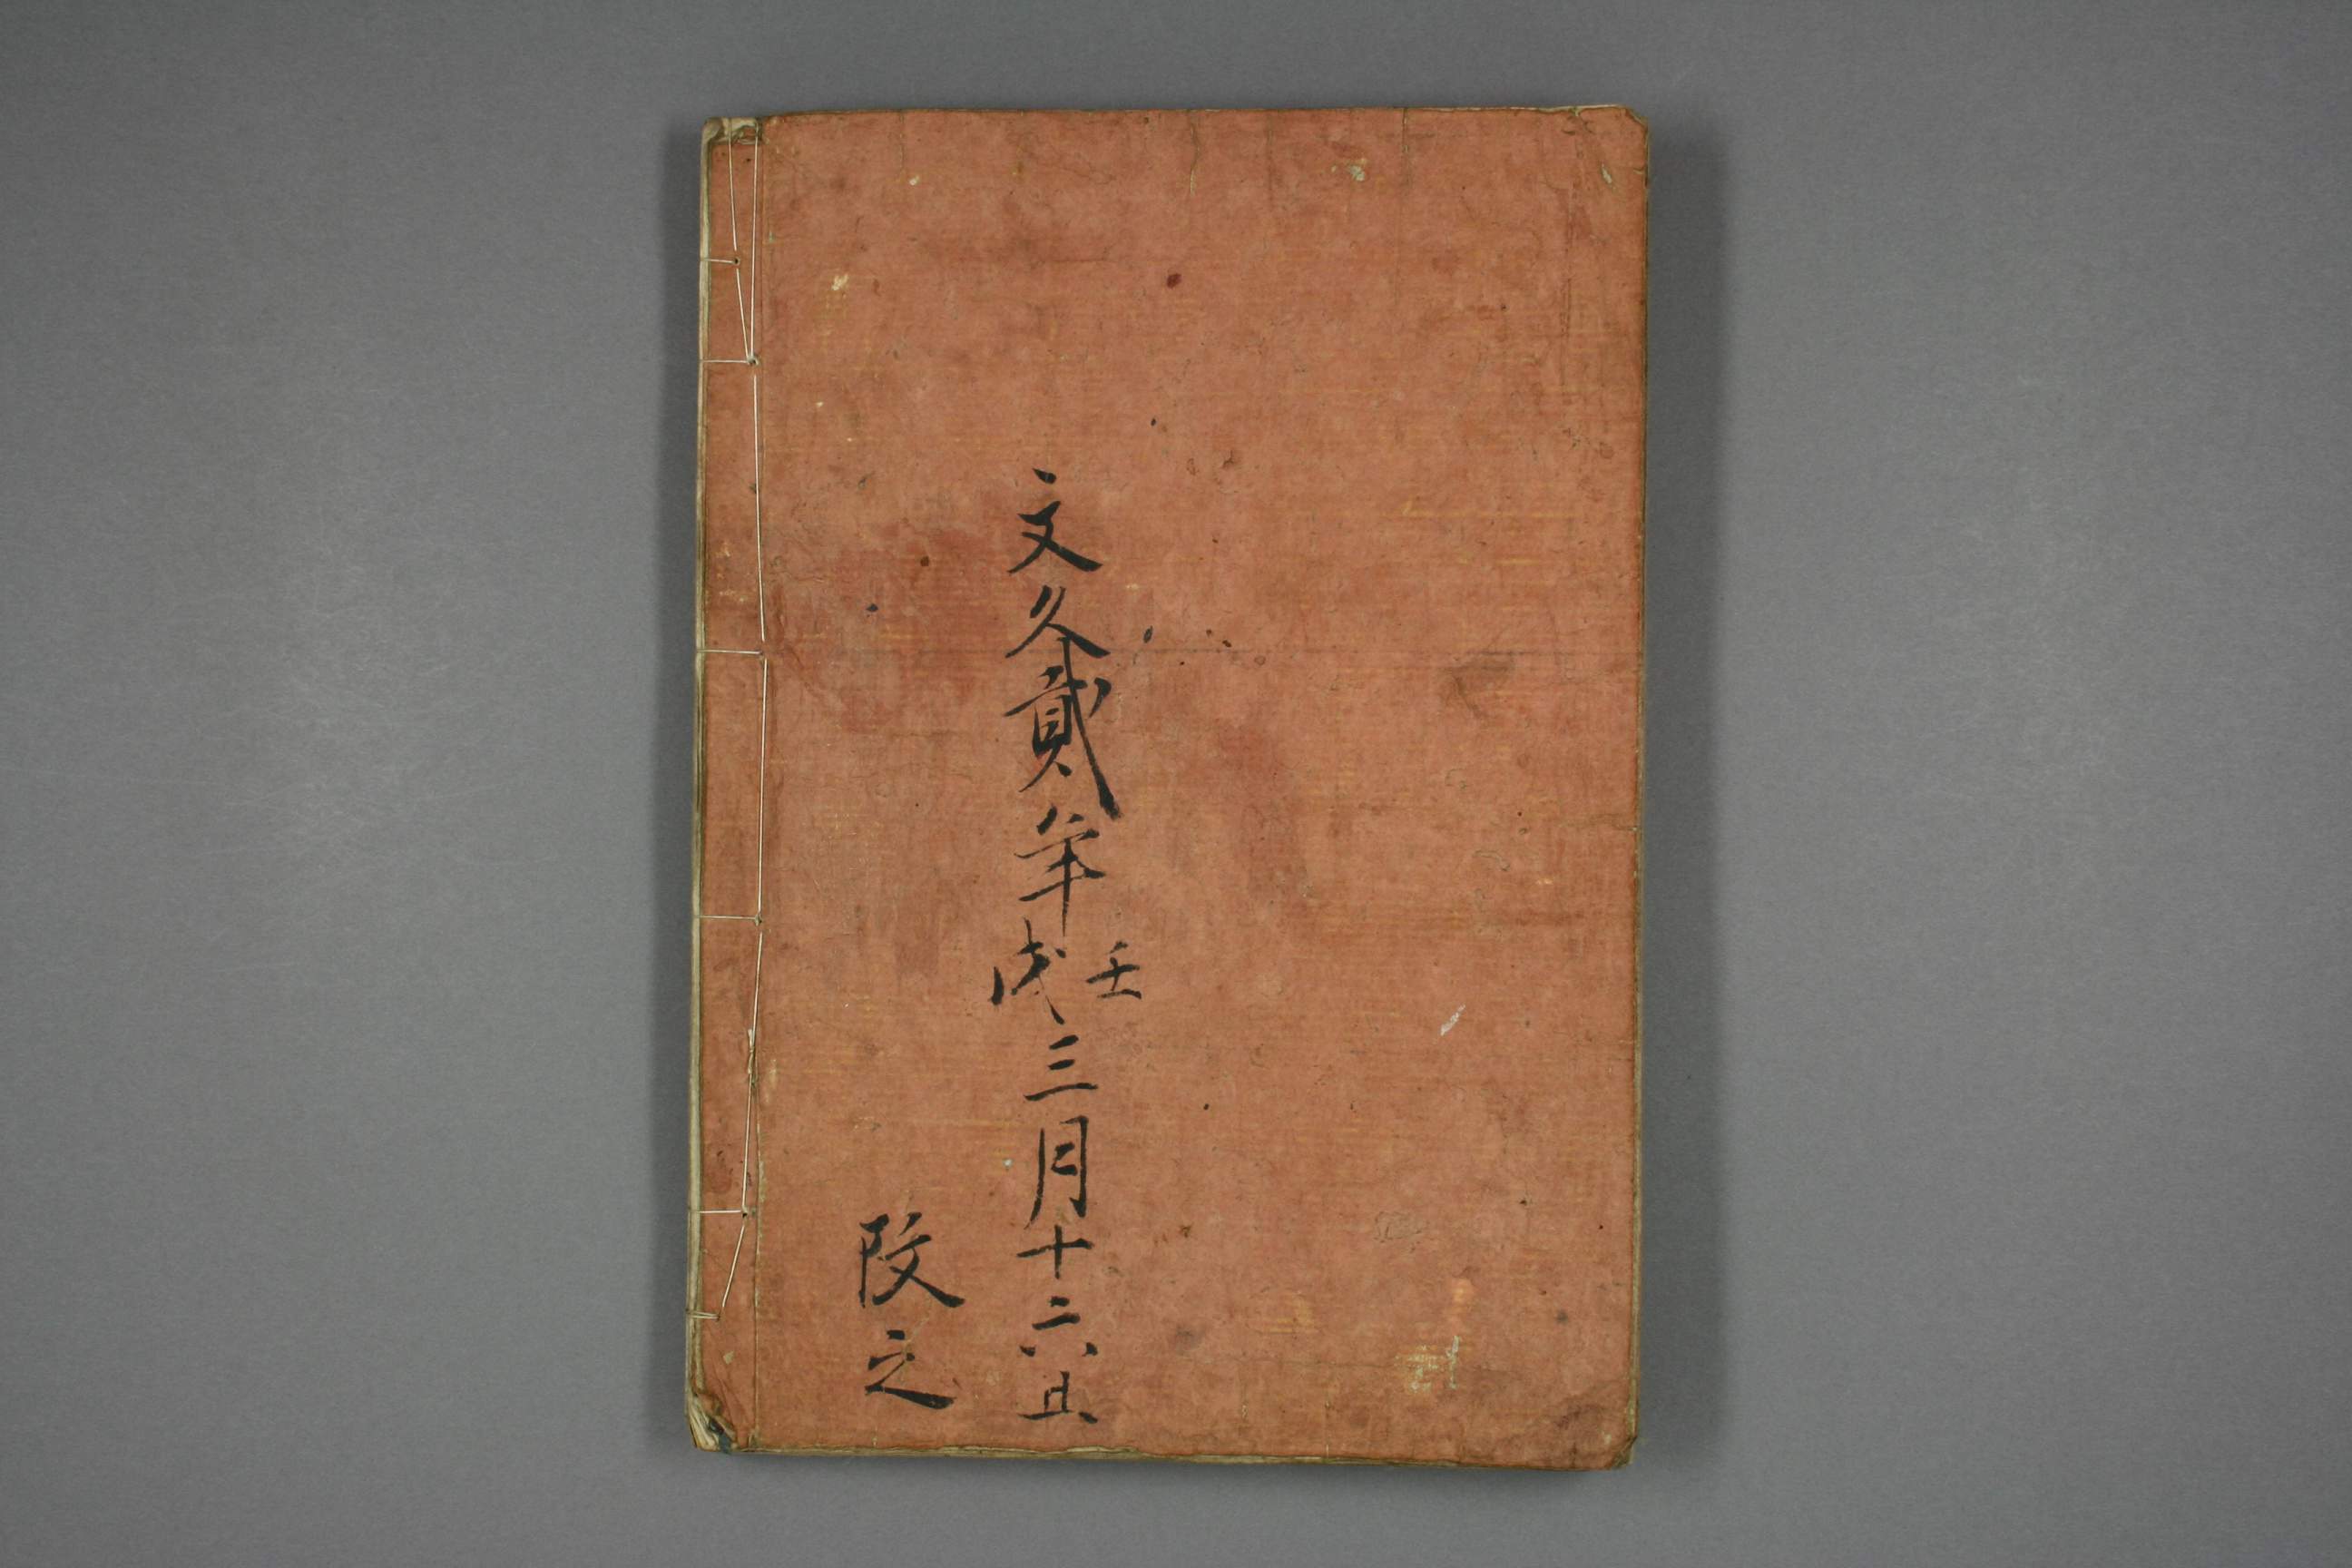 文久貳年壬戌三月十六止
改之